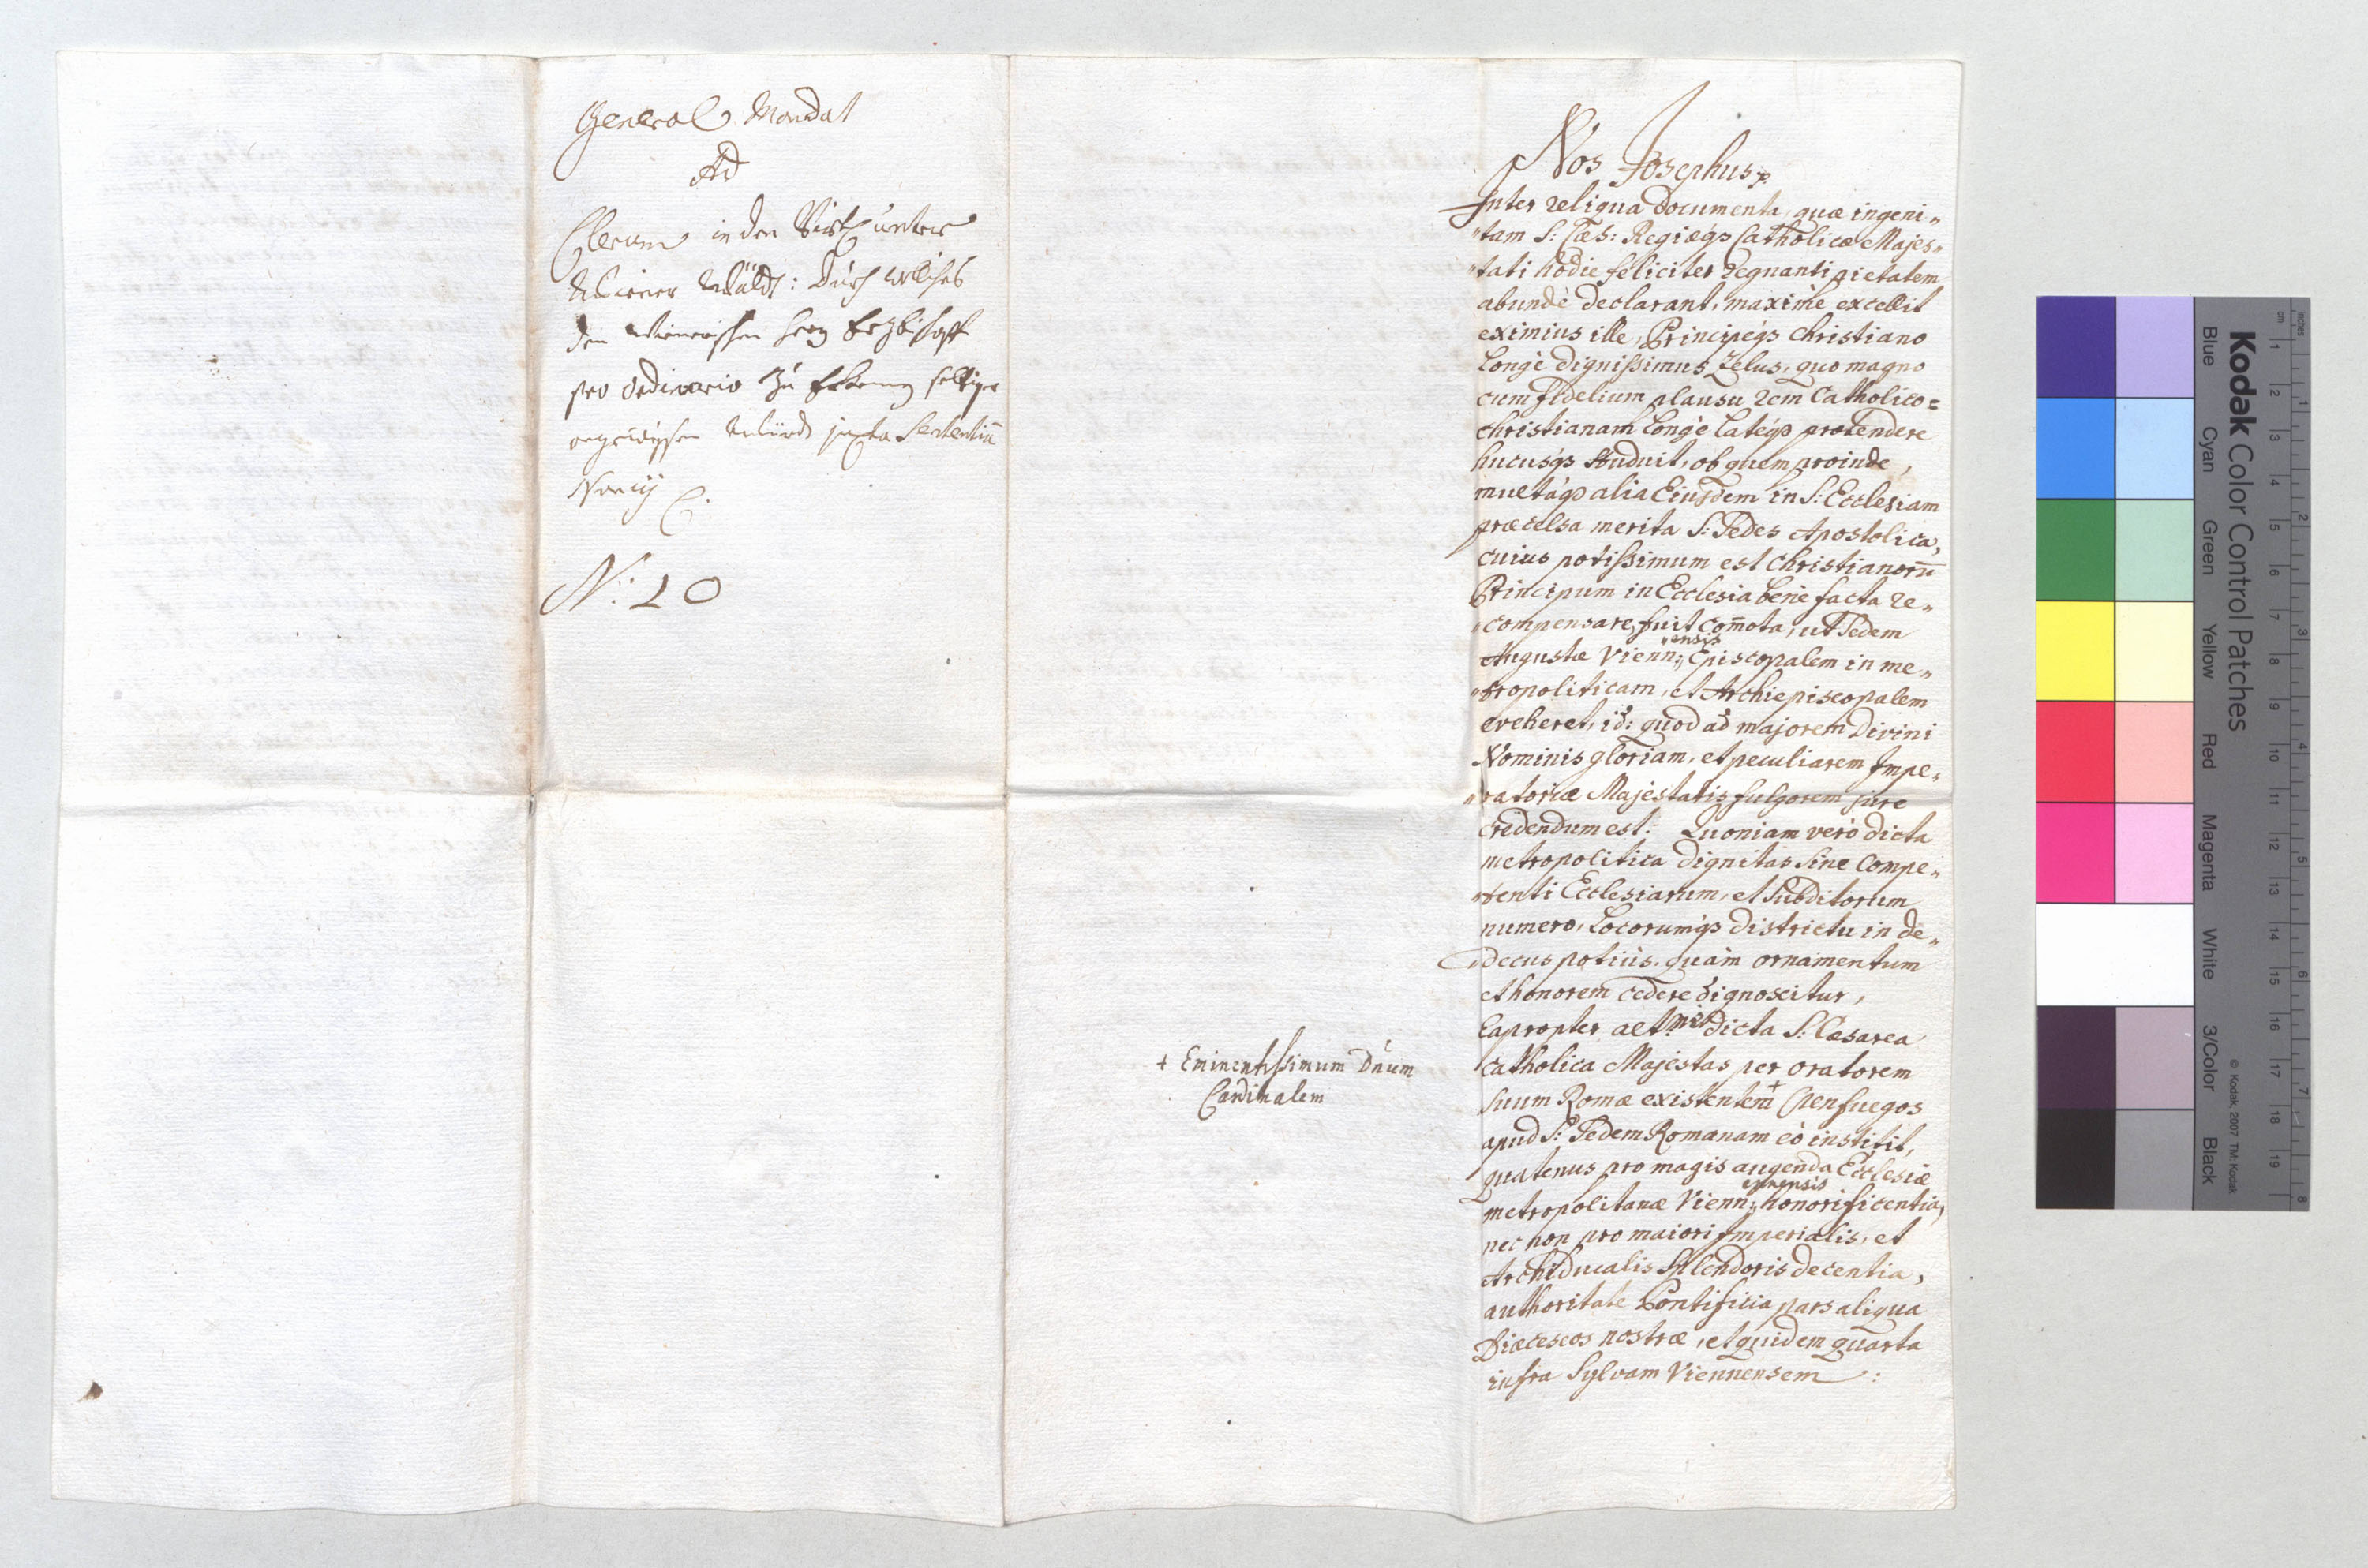 General Mandat
Ad
Clerum in den Virtl unter
Wiener Wäldt: Durch welches
den Wienerischen Herrn Erzbischoff
pro Ordinario zu Erkennen selbiger
angewisen würdt juxta Sententiã
Nuncij
N: 10
Nos Josephus
Inter reliqua documenta, quæ ingeni„
„tam S: Cæs: Regiæq3 Catholicæ Majes„
„tati hodie feliciter regnanti pietatem
abundè declarant, maximè excellit
eximius ille, Principéq3 Christiano
longè dignissimus Zelus, quo magno
cum fidelium plausu rem Catholico=
christianam longè latéq3 protendere
hucusq3 studuit, ob quem proinde,
multáq3 alia Eiusdem in S: Ecclesiam
præcelsa merita S: Sedes Apostolica,
cuius potissimum est Christianorũ
Principum in Ecclesia bene facta re„
„compensare, fuit com̄ota, ut Sedem
Augustæ Vienn„ensis Episcopalem in me„
„tropoliticam, et Archiepiscopalem
eveheret, id: quod ad majorem Divini
Nominis gloriam, et peculiarem Impe„
„ratoriæ Majestatis fulgorem jure
credendum est: Quoniam verò dicta
metropolitica dignitas sine Compe„
„tenti Ecclesiarum, et Subditorum
numero, Locorumq3 districtu in de„
„decus potiùs, quàm ornamentum
et honorem cedere dignoscitur,
Eapropter alt: dicta S: Cæsarea
Catholica Majestas per oratorem
suum Romæ existentem + Cienfuegos
apud S: Sedem Romanam eò institit,
quatenus pro magis augenda Ecclesiæ
metropolitanæ Vienn„ensis honorificentia,
nec non pro maiori Imperialis, et
Archiducalis Splendoris decentia,
authoritate Pontificia pars aliqua
Diœceseos nostræ, et quidem quarta
infra Sylvam Viennensem :
+ Eminentissimum Dnum
Cardinalem
Kodak Color Control Patches
Blue Cyan Green Yellow Red Magenta White 3/Color Black
© Kodak, 2007 TM: Kodak
inches 1 2 3 4 5 6 7 8
cm 1 2 3 4 5 6 7 8 9 10 11 12 13 14 15 16 17 18 19